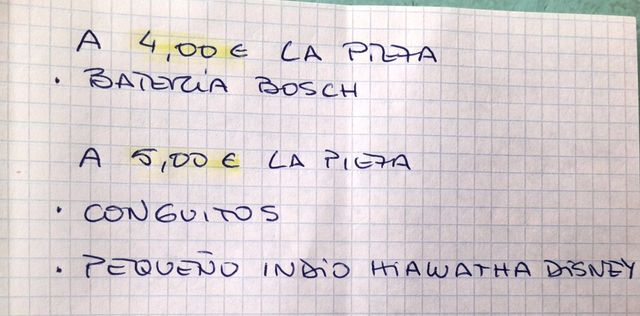 A 4,00 € LA PIEZA
· BATERÍA BOSCH
A 5,00 € LA PIEZA
· CONGUITOS
· PEQUEÑO INDIO HIAWATHA DISNEY